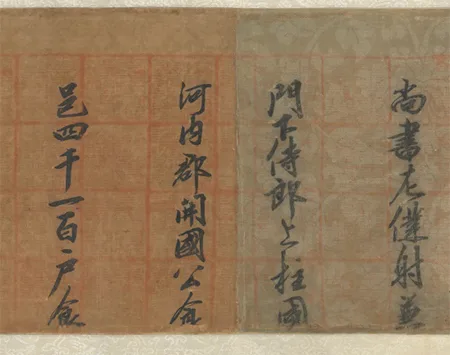 尚書左僕射兼
門下侍郎上柱國
河内郡開國公食
邑四千一百户食